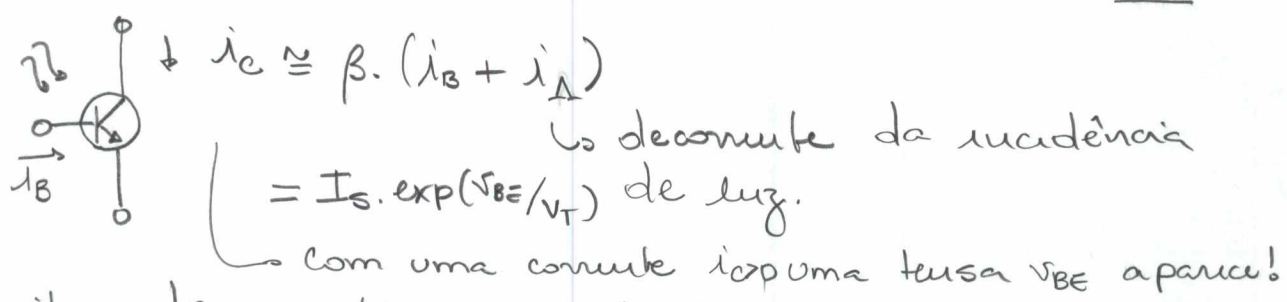 ↓ i_C ≅ β. (i_B + i_Λ)
↳ decorrente da incidência
i_B
= I_S. exp(V_BE/V_T) de luz.
↳ Com uma corrente i_C>0 uma tensa V_BE aparece!